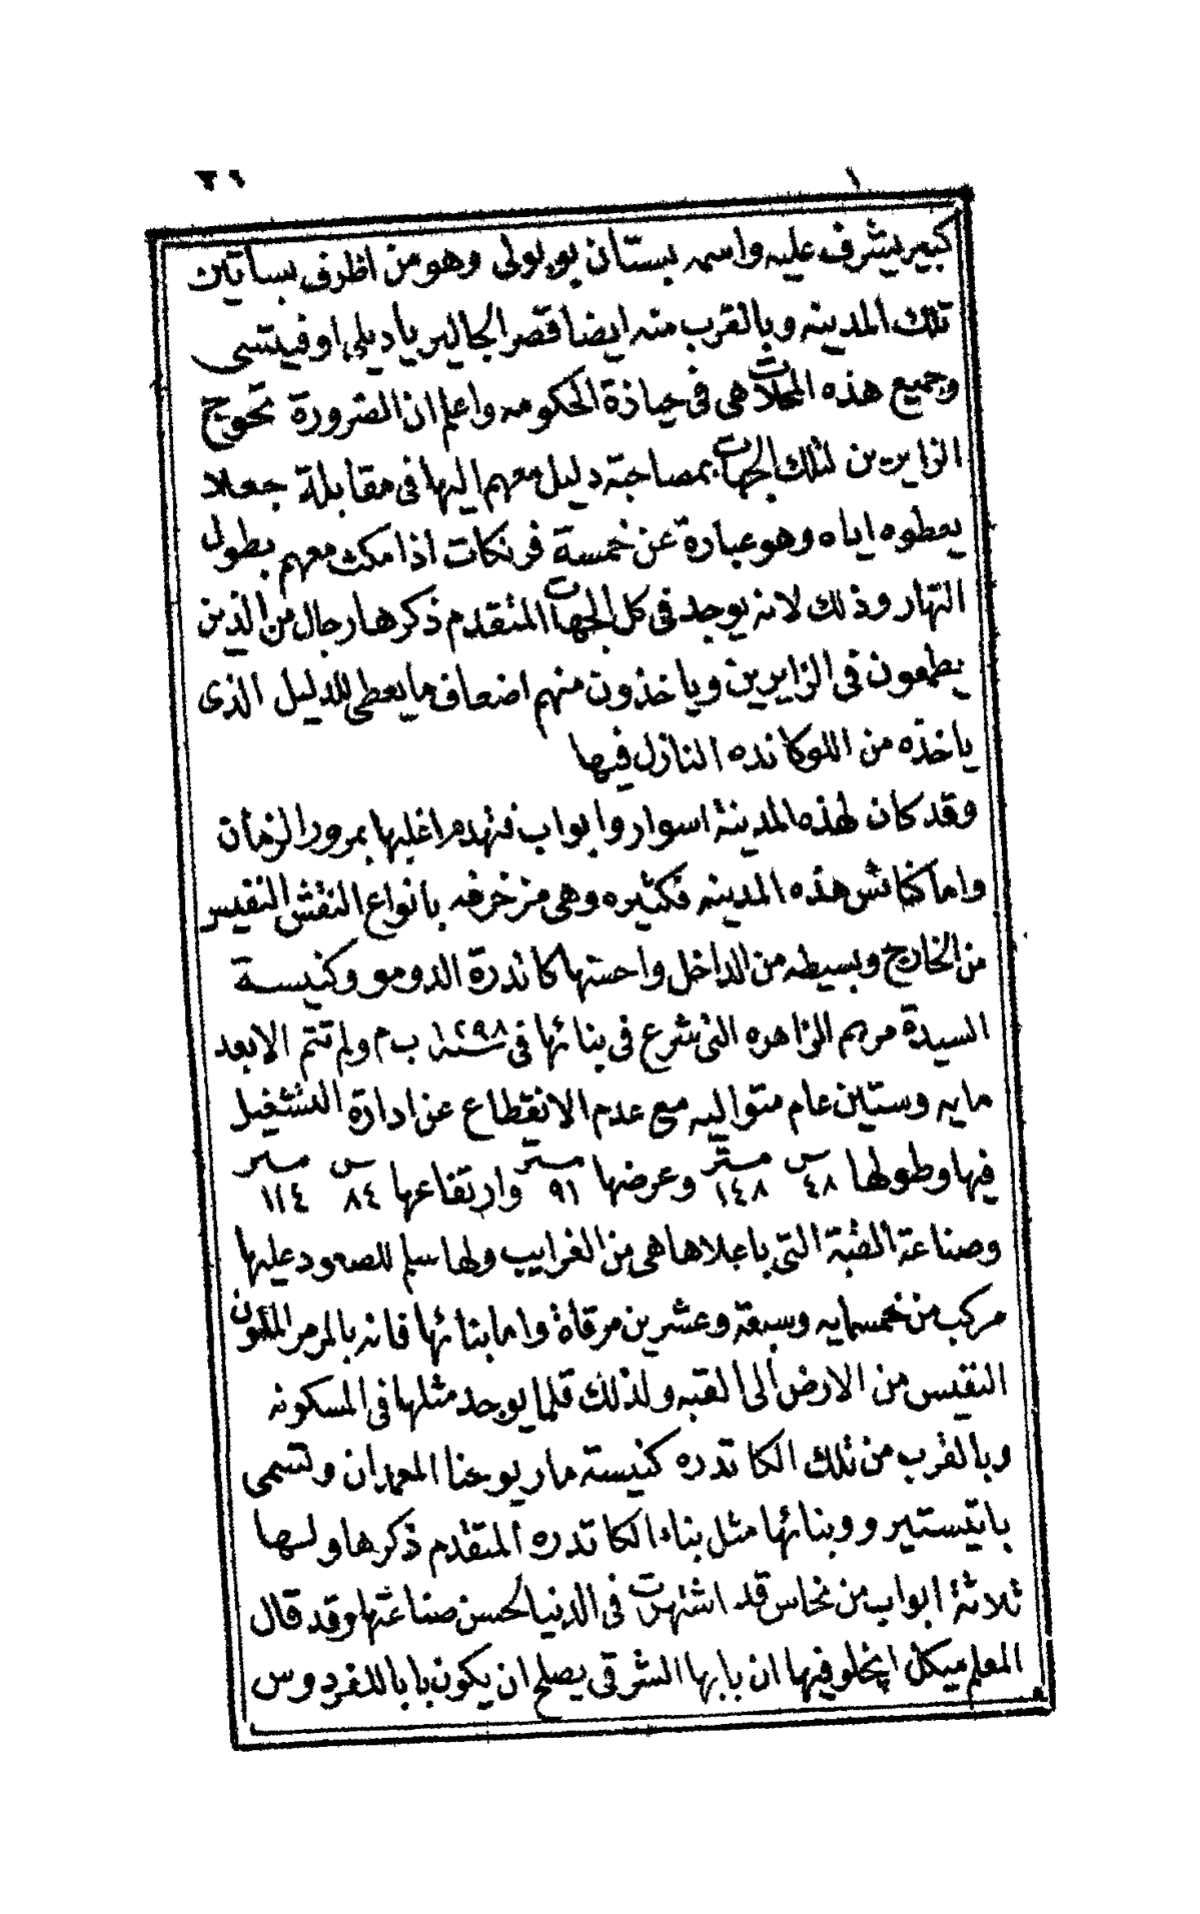 ٢٦
كبير يشرف عليه واسمه بستان بوبولى وهو من اظرف بساتين
تلك المدينه وبالقرب منه ايضا قصر الجاليريا ديلى اوفيتسى
وجميع هذه المحلات هى فى حيازة الحكومه واعلم ان الضرورة تحوج
الزايرين لتلك الجهات بمصاحبة دليل معهم اليها فى مقابلة جعلا
يعطوه اياه وهو عبارة عن خمسة فرنكات اذا مكث معهم بطول
النهار وذلك لانه يوجد فى كل الجهات المتقدم ذكرها رجال من الذين
يطمعون فى الزايرين وياخذون منهم اضعاف ما يعطى للدليل الذى
ياخذه من اللوكانده النازل فيها
وقد كان لهذه المدينة اسوار وابواب فتهدم اغلبها بمرور الزمان
واما كنائس هذه المدينه فكثيره وهى مزخرفه بانواع النقش النفيس
من الخارج وبسيطه من الداخل واحسنها كاتدرة الدومو وكنيسة
السيدة مريم الزاهره التى شرع فى بنائها فى سنة ١٢٩٨ ب م ولم تتم الا بعد
مايه وستين عام متواليه مع عدم الانقطاع عن ادارة التشغيل
فيها وطولها س ٤٨ متر ١٤٨ وعرضها متر ٩١ وارتفاعها س ٨٤ متر ١١٤
وصناعة القبة التى باعلاها هى من الغرايب ولها سلم للصعود عليها
مركب من خمسمايه وسبعة وعشرين مرقاة واما بنائها فانه بالمرمر الملون
النفيس من الارض الى القبه ولذلك قلما يوجد مثلها فى المسكونه
وبالقرب من تلك الكاتدره كنيسة مار يوحنا المعمدان وتسمى
باتيستيرو وبنائها مثل بناء الكاتدره المتقدم ذكرها ولها
ثلاثة ابواب من نحاس قد اشتهرت فى الدنيا لحسن صناعتها وقد قال
المعلم ميكل انجلو فيها ان بابها الشرقى يصلح ان يكون بابا للفردوس